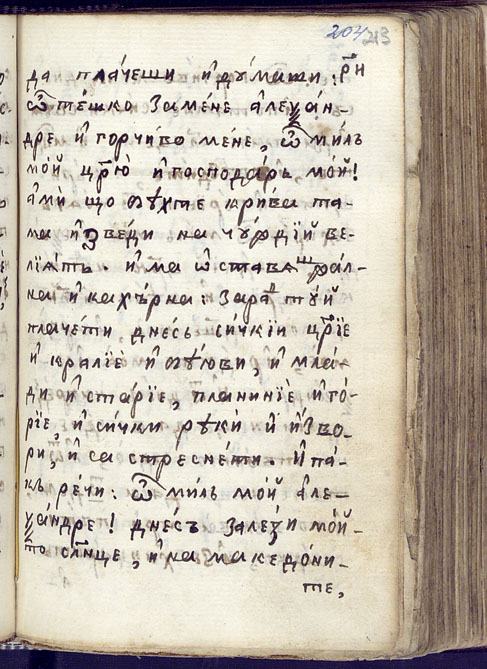 204 213
да плачеши и думаши : р҃и
ѿ тешко замене алеѯан-
дре и горчиво мене, ѿ миль
мой цр҃ю и господарь мой!
ами що бѣхте крива та-
ма изведи на чꙋрдїй ве-
лїатъ. и ма ѡставѧ жал-
на и кахърна: зарад туй
плачети днесь сичкїи цр҃їе
и кралїе и бѣгюви, и мла-
ди и старїе, планинїе и го-
рїе и сички рѣки и изво-
ри, и са стреснети. И па-
къ речи: ѿ миль мой але-
ѯандре! днесъ залези мой-
то слнце, и на македони-
те,